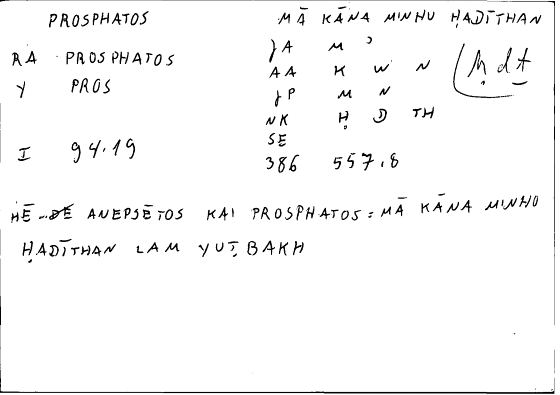 PROSPHATOS
MĀ KĀNA MINHU ḤADĪTHAN
RA PROSPHATOS
Y PROS
I 94.19
JA M ʾ
AA K W N
JP M N
NK Ḥ D TH
SE
386 557.8
ḥdṯ
HĒ ANEPSĒTOS KAI PROSPHATOS = MĀ KĀNA MINHU
ḤADĪTHAN LAM YUṬBAKH